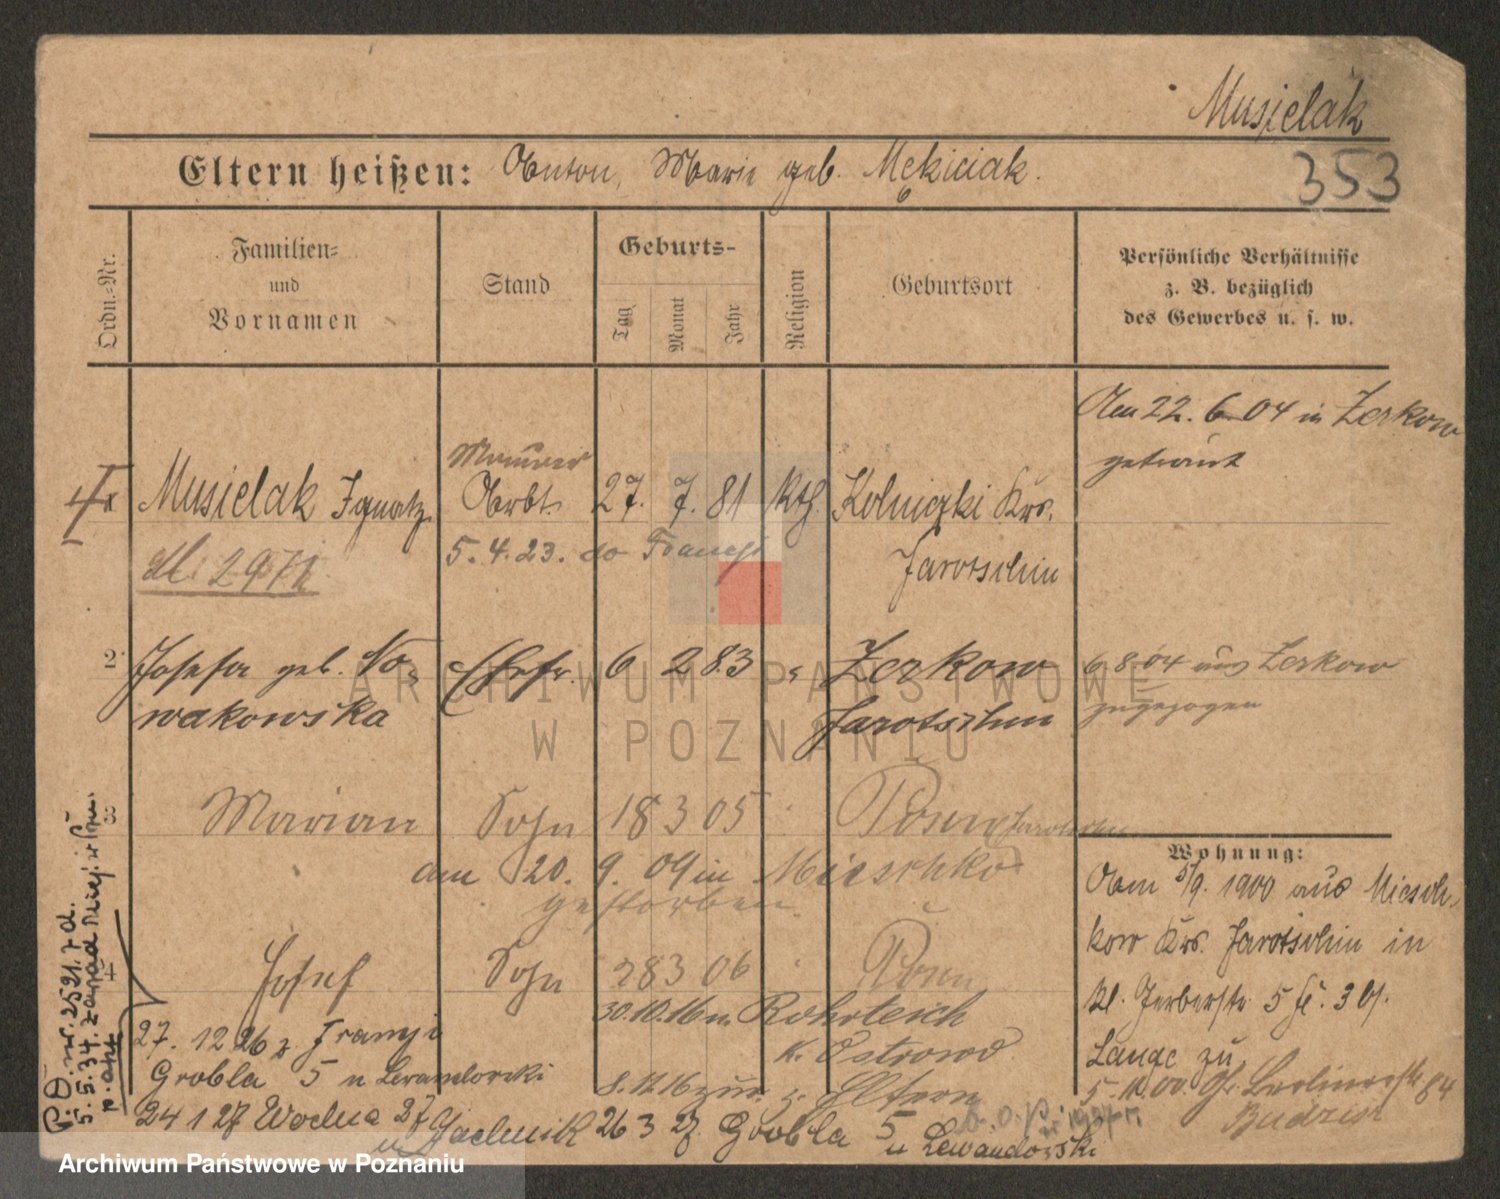 Musielak
353
Eltern heißen: Anton, Marie geb. Mękiciak.
Ordn.-Nr.
Familien-
und
Vornamen
Stand
Geburts-
Tag
Monat
Jahr
Religion
Geburtsort
Persönliche Verhältnisse
z. B. bezüglich
des Gewerbes u. s. w.
Am 22. 6. 04 in Zerkow
getraut
Maurer
Musielak Ignatz Arbt. 27. 7. 81 kth. Kolniczki Krs.
Jarotschin
5. 4. 23. do Francji
2 Josefa geb. No-
wakowska
Ehefr. 6 2 83 " Zerkow
Jarotschin
6. 8. 04 aus Zerkow
zugezogen
3 Marian Sohn 18 3 05 Posen
am 20. 9. 09 in Mieschkow
gestorben
4 Josef Sohn 28 3 06 Posen
30.10.16 n. Rohrteich
K. Ostrowo
8. 12. 16 zur. z. Eltern
Wohnung:
Vom 5/9. 1900 aus Miesch-
kow Krs. Jarotschin in
kl. Gerberstr. 5
Lange zu
5. 10. 00. Gr. Berlinerstr. 84
Budzin
27. 12 26 z Francji
Grobla 5 u Lewandowski
24 1 27 Wodna 27
26 3 27. Grobla 5
u Lewandowski
5. 5. 34.
ARCHIWUM PAŃSTWOWE
W POZNANIU
Archiwum Państwowe w Poznaniu